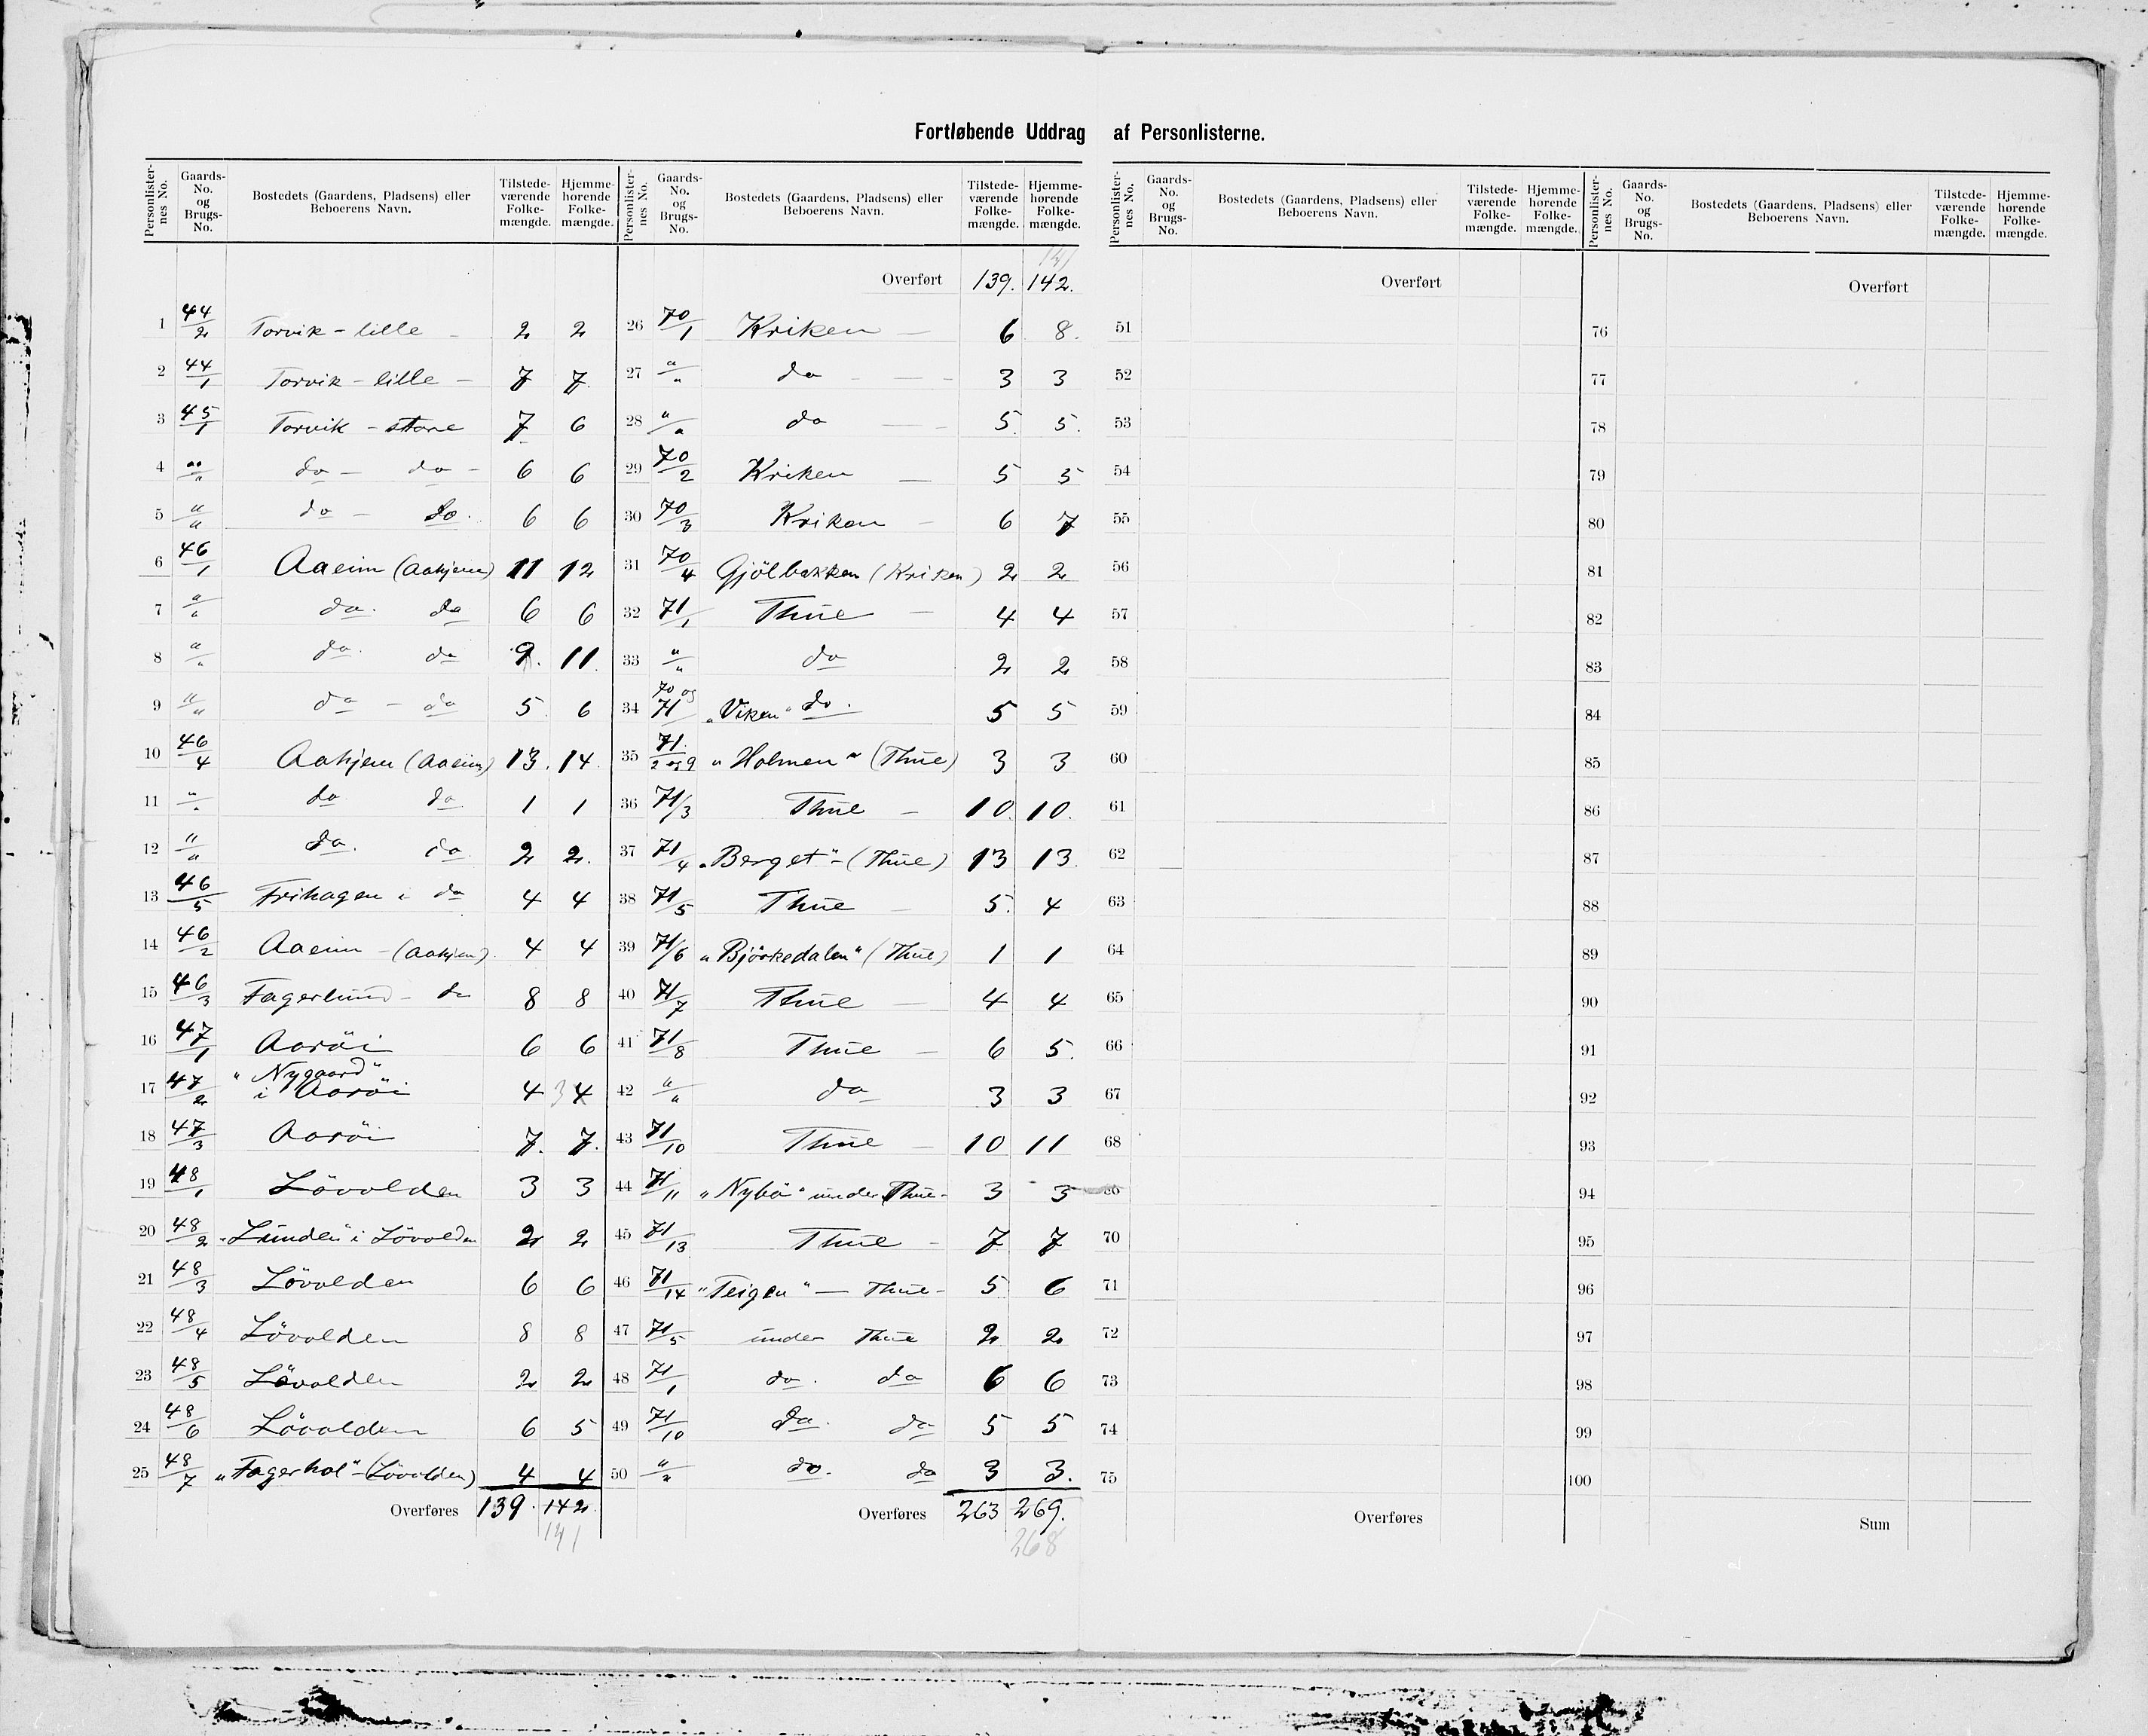 Fortløbende Uddrag af Personlisterne.
Personlister-nes No. | Gaards-No. og Brugs-No. | Bostedets (Gaardens, Pladsens) eller Beboerens Navn. | Tilstede-værende Folke-mængde. | Hjemme-hørende Folke-mængde.
1 44/2 Torvik - lille - 2 2
2 44/1 Torvik - lille - 7 7
3 45/1 Torvik - store 7 6
4 "/" do - do - 6 6
5 "/" do - do. 6 6
6 46/1 Aaeim (Aahjem) 11 12
7 "/" do. do 6 6
8 "/" do. do 9. 11
9 "/" do - do 5 6
10 46/4 Aahjem (Aaeim) 13. 14
11 "/" do do 1 1
12 "/" do. do 2 2.
13 46/5 Frihagen i do 4 4
14 46/2 Aaeim - (Aahjem) 4 4
15 46/3 Fagerlund - do 8 8
16 47/1 Aaröi 6 6
17 47/2 "Nygaard" i Aaröi 4 3 4
18 47/3 Aaröi 7. 7.
19 48/1 Lövolden 3 3
20 48/2 "Lunden" i Lövolden 2 2
21 48/3 Lövolden 6 6
22 48/4 Lövolden 8 8
23 48/5 Lövolden 2 2
24 48/6 Lövolden 6 5
25 48/7 "Fagerhol" - (Lövolden) 4 4
Overføres 139. 142.
141
Personlister-nes No. | Gaards-No. og Brugs-No. | Bostedets (Gaardens, Pladsens) eller Beboerens Navn. | Tilstede-værende Folke-mængde. | Hjemme-hørende Folke-mængde.
141
Overført 139. 142.
26 70/1 Kriken - 6 8.
27 "/" do - - - 3 3
28 "/" do - - 5. 5.
29 70/2 Kriken - 5 5
30 70/3 Kriken - 6 7
31 70/4 Gjölbakken (Kriken) 2 2
32 71/1 Thue - 4 4
33 "/" do 2 2
34 70 og 71 "Viken" do. 5 5
35 71/2 og 9 "Holmen" (Thue) 3 3
36 71/3 Thue - 10. 10.
37 71/4 "Berget" - (Thue) 13 13
38 71/5 Thue - 5. 4
39 71/6 "Björkedalen" (Thue) 1 1
40 71/7 Thue - 4 4
41 71/8 Thue - 6 5.
42 "/" do 3 3
43 71/10 Thue - 10 11
44 71/11 "Nybö" under Thue - 3 3
45 71/13 Thue - 7 7
46 71/14 "Teigen" - Thue - 5 6
47 71/5 under Thue 2 2
48 71/1 do. do 6 6
49 71/10 do. do 5 5
50 "/" do. do 3 3.
Overføres 263 269.
268
Personlister-nes No. | Gaards-No. og Brugs-No. | Bostedets (Gaardens, Pladsens) eller Beboerens Navn. | Tilstede-værende Folke-mængde. | Hjemme-hørende Folke-mængde.
Overført
51
52
53
54
55
56
57
58
59
60
61
62
63
64
65
66
67
68
70
71
72
73
74
75
Overføres
Personlister-nes No. | Gaards-No. og Brugs-No. | Bostedets (Gaardens, Pladsens) eller Beboerens Navn. | Tilstede-værende Folke-mængde. | Hjemme-hørende Folke-mængde.
Overført
76
77
78
79
80
81
82
83
84
85
86
87
88
89
90
91
92
93
94
95
96
97
98
99
100
Sum